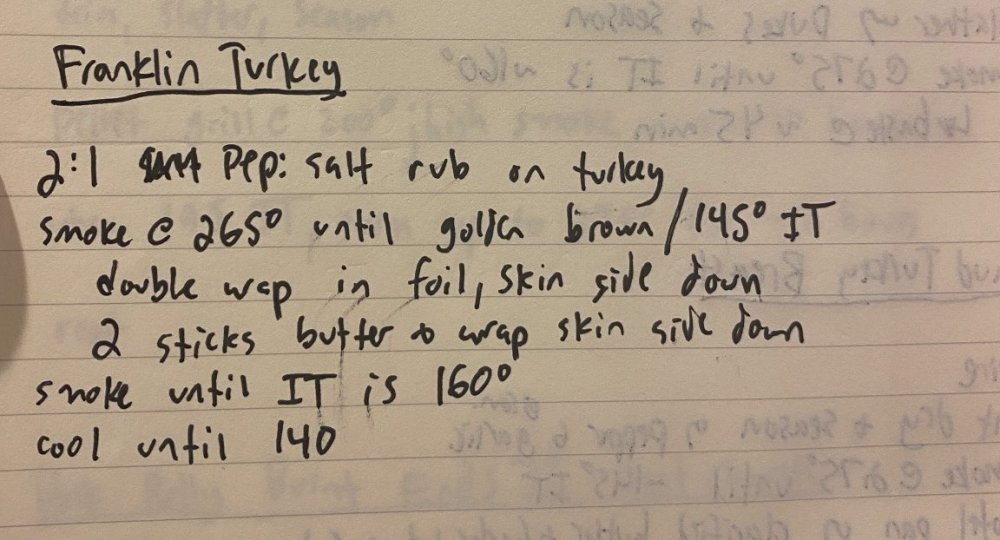 Franklin Turkey
2:1 Pep: salt rub on turkey
smoke @ 265° until golden brown / 145° IT
double wrap in foil, skin side down
2 sticks butter & wrap skin side down
smoke until IT is 160°
cool until 140